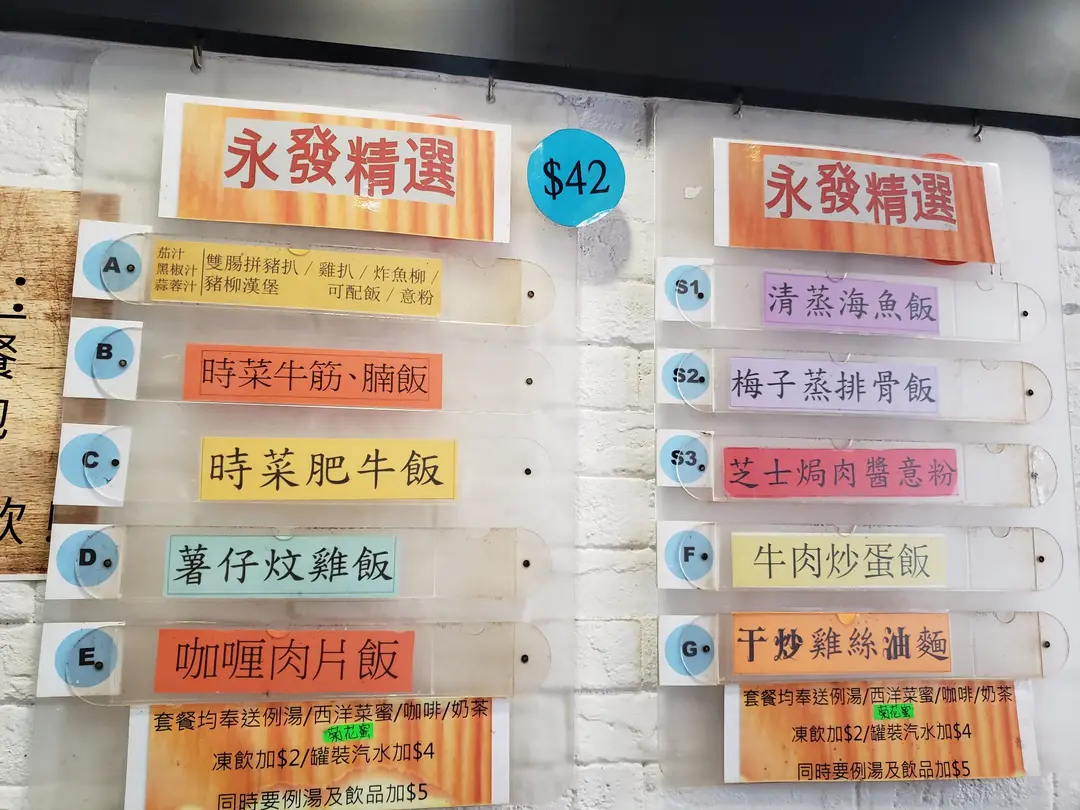 永發精選
$42
A
茄汁
黑椒汁
蒜蓉汁
雙腸拼豬扒 / 雞扒 / 炸魚柳 /
豬柳漢堡 可配飯 / 意粉
B
時菜牛筋、腩飯
C
時菜肥牛飯
D
薯仔炆雞飯
E
咖喱肉片飯
套餐均奉送例湯/西洋菜蜜/咖啡/奶茶
菊花蜜
凍飲加$2/罐裝汽水加$4
同時要例湯及飲品加$5
永發精選
S1
清蒸海魚飯
S2
梅子蒸排骨飯
S3
芝士焗肉醬意粉
F
牛肉炒蛋飯
G
干炒雞絲油麵
套餐均奉送例湯/西洋菜蜜/咖啡/奶茶
菊花蜜
凍飲加$2/罐裝汽水加$4
同時要例湯及飲品加$5
餐
飲!